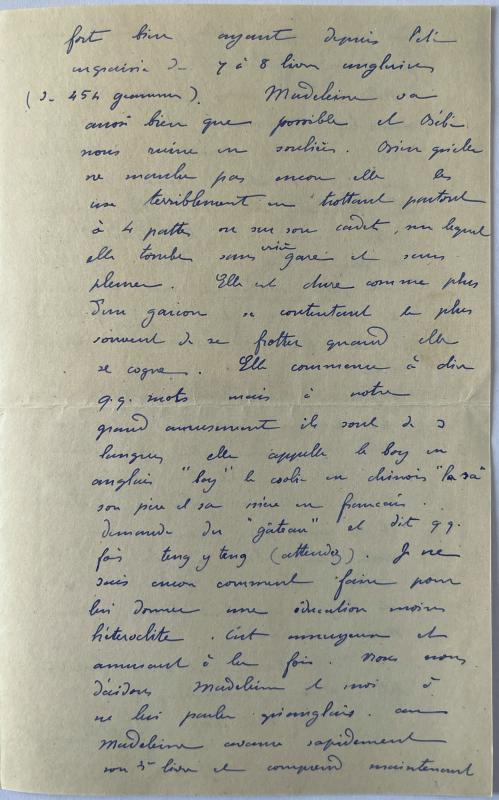 fort bien ayant depuis l'été
engraissé de 7 à 8 livres anglaises
(de 454 grammes). Madeleine va
aussi bien que possible et Bébé
nous ruine en souliers. Bien qu'elle
ne marche pas encore elle les
use terriblement en trottant partout
à 4 pattes ou sur son cadet, sur lequel
elle tombe sans crier gare et sans
pleurer. Elle est dure comme plus
d'un garçon se contentant le plus
souvent de se frotter quand elle
se cogne. Elle commence à dire
q.q. mots mais à notre
grand amusement ils sont de 3
langues elle appelle le boy en
anglais "boy" le coolie en chinois
son père et sa mère en français.
demande du "gâteau" et dit q.q.
fois teng y teng (attendez). Je ne
sais encore comment faire pour
lui donner une éducation moins
hétéroclite. C'est ennuyeux et
amusant à la fois. Nous nous
décidons Madeleine & moi à
ne lui parler qu'anglais. car
Madeleine avance rapidement
son 3e livre et comprend maintenant